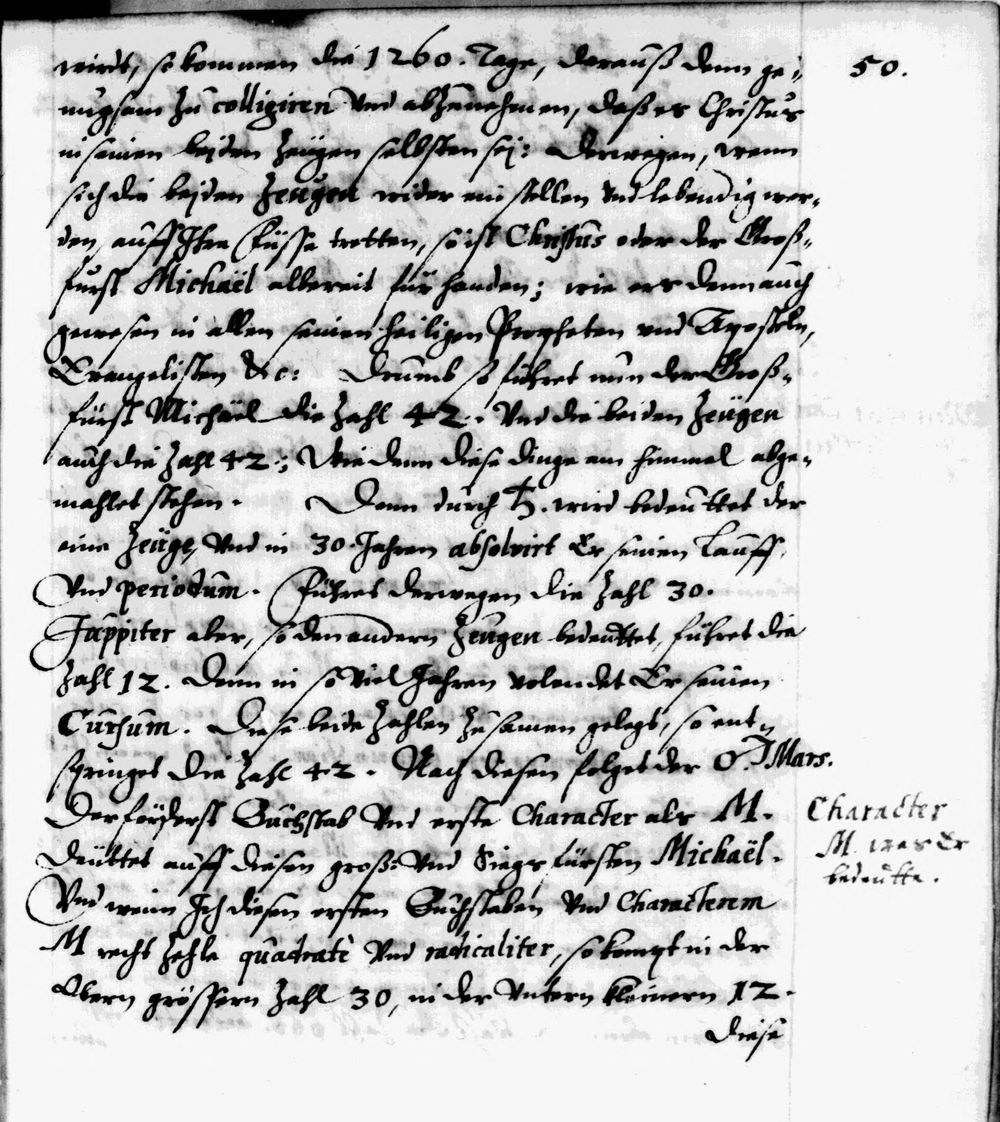 50.
wirdt, so kommen die 1260. Tage, darauß denn ge-
nugsam zu colligiren vnd abzunehmen, daß es Christus
in seinen beyden Zeugen selbsten sey: Derwegen, wenn
sich die beyden Zeugen wider einstellen vnd lebendig wer-
den, auff Ihre Füsse tretten, so ist Christus oder der Groß-
fürst Michaël albereit fürhanden; wie er denn auch
gewesen in allen seinen heiligen Propheten vnd Aposteln,
Evangelisten &c: Drumb so führet nun der Groß-
fürst Michaël die Zahl 42. Vnd die beiden Zeugen
auch die Zahl 42.; Wie denn diese dinge am himmel abge-
mahlet stehen. Denn durch ♄. wird bedeuttet der
eine Zeuge, Vnd in 30 Jahren absolvirt Er seinen Lauff
Vnd periodum. Führet derwegen die Zahl 30.
Juppiter aber, so den andern Zeugen bedeuttet, führet die
Zahl 12. Denn in so viel Jahren volendet Er seinen
Cursum. Diese beide Zahlen zusamen gelegt, so ent-
springet die Zahl 42. Nach diesen folget der ♂. Mars.
Der förderst Buchstab Vnd erste Character als M.
Deuttet auff diesen große Vnd Siegsfürsten Michaël.
Vnd wenn Ich diesen ersten Buchstaben Vnd Characterem
M recht Zehle quadratè Vnd radicaliter, so kompt in der
Obern grössern Zahl 30, in der Vntern kleinern 12.
Diese
Character
M. was Er
bedeutte.